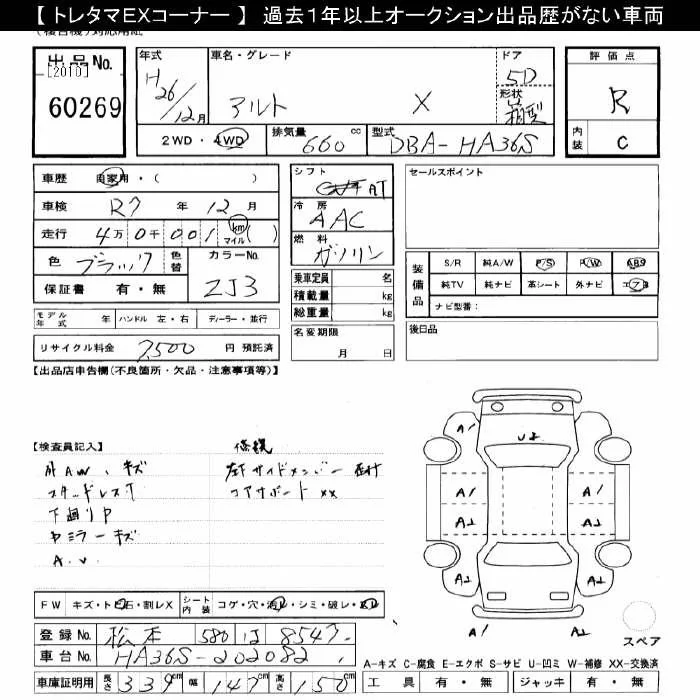 【 トレタマEXコーナー 】 過去1年以上オークション出品歴がない車両
出品No.
[2010]
60269
年式
H26/12月
車名・グレード
アルト X
ドア
5D
形状
箱型
2WD・4WD
排気量 660 cc
型式 DBA-HA36S
評価点
R
内装 C
車歴 自家用・( )
車検 R7 年 12 月
走行 4万0千001 km マイル( )
色 ブラック 色替
カラーNo.
ZJ3
保証書 有・無
モデル年式 年 ハンドル 左・右 ディーラー・並行
リサイクル料金 7,500 円 預託済
シフト
AT
冷房
AAC
燃料
ガソリン
乗車定員 名
積載量 kg
総重量 kg
名変期限
月 日
セールスポイント
装備品
S/R 純A/W P/S P/W ABS
純TV 純ナビ 革シート 外ナビ エアB
ナビ型番：
後日品
【出品店申告欄(不良箇所・欠品・注意事項等)】
【検査員記入】
修復
外AW、キズ
左下サイドメンバー
スタッドレス
コアサポート XX
下廻りP
ミラーキズ
A.U
A1
U2
A1
A1
A1
A2
A2
A2
A2
A1
A2
スペア
FW キズ・トビ石・割レX
シート内装 コゲ・穴・汚レ・シミ・破レ・スレ
登録No. 松本 580 は 8547
車台No. HA36S-202082
車庫証明用 長さ 339 cm 幅 147 cm 高さ 150 cm
A-キズ C-腐食 E-エクボ S-サビ U-凹ミ W-補修 XX-交換済
工具 有・無 ジャッキ 有・無